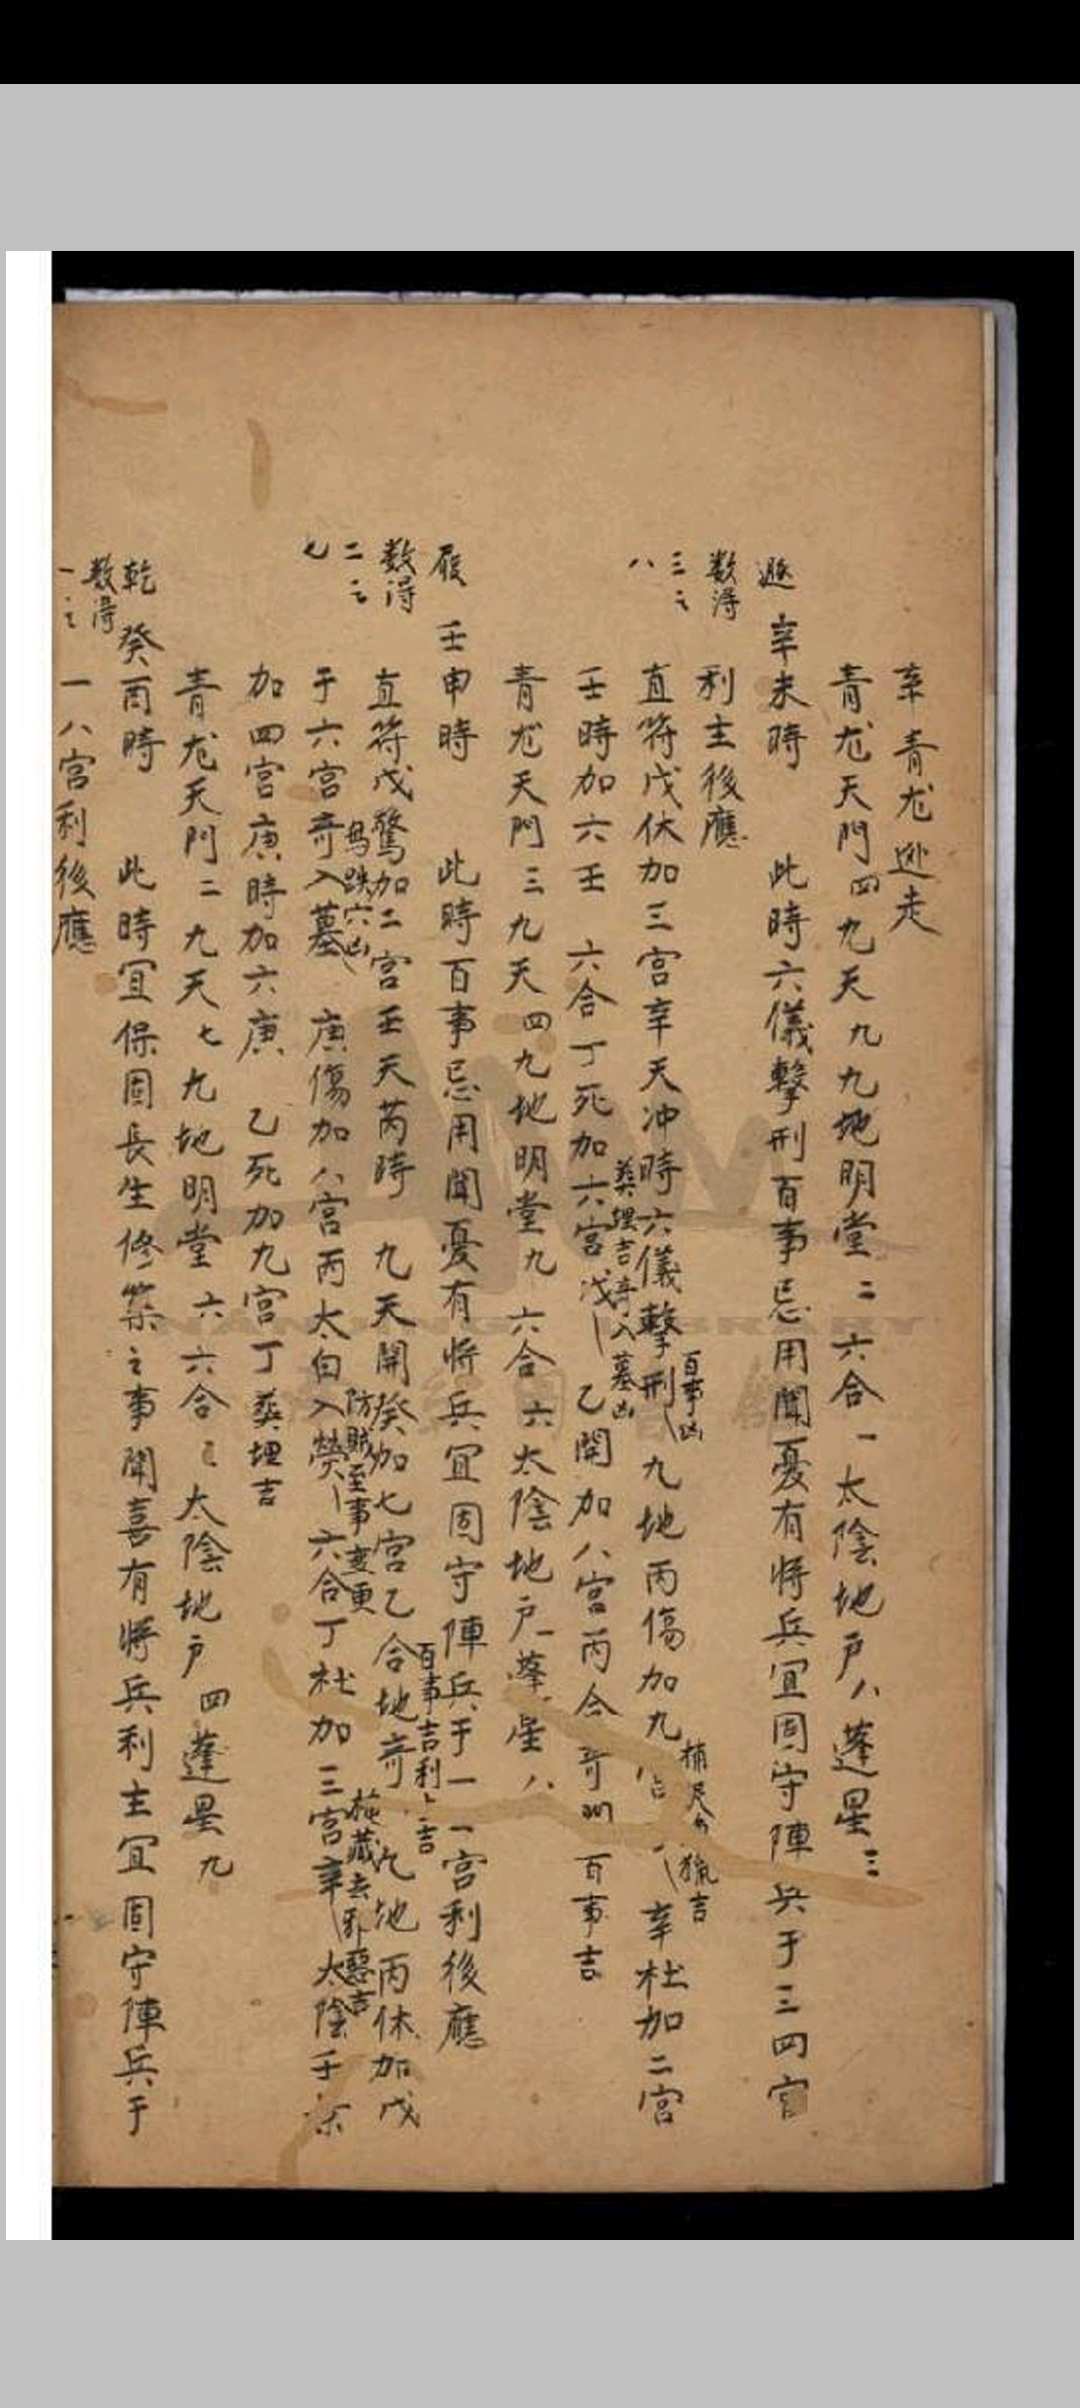 辛青尨逃走
青尨天門四九天九九地明堂二六合一太陰地戶八蓬星三
遯辛未時 此時六儀擊刑百事忌用聞憂有將兵宜固守陣兵于三四宮
利主後應
数得三之八
直符戊休加三宮辛天冲時六儀擊刑百事凶 九地丙傷加九 猟吉 辛杜加二宮
壬時加六壬 六合丁死加六宮戊葬埋吉奇入墓凶 乙開加八宮丙合奇 百事吉
青尨天門三九天四九地明堂九六合六太陰地戶一蓬星八
履壬申時 此時百事忌用聞憂有將兵宜固守陣兵于一一宮利後應
数得二之七
直符戊驚加二宮壬天芮時 九天開癸加七宮乙合地奇百事吉利上吉 九地丙休加戊
于六宮奇入墓鳥跌穴凶 庚傷加八宮丙太白入熒防賊至事变更 六合丁杜加三宮辛 藏去邪惡吉 太陰壬
加四宮庚時加六庚 乙死加九宮丁葬埋吉
青尨天門二九天七九地明堂六六合太陰地戶四蓬星九
乾癸酉時 此時宜保固長生修築之事聞喜有將兵利主宜固守陣兵于
数得一之
一八宮利後應